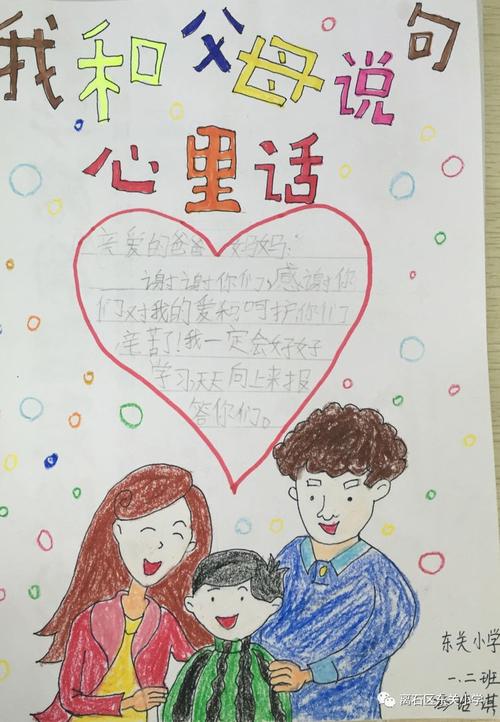 我和父母说句
心里话
亲爱的爸爸妈妈:
谢谢你们,感谢你
们对我的爱和呵护你们
辛苦了!我一定会好好
学习天天向上来报
答你们。
东关小学
一.二班
琪
离石区东关小学